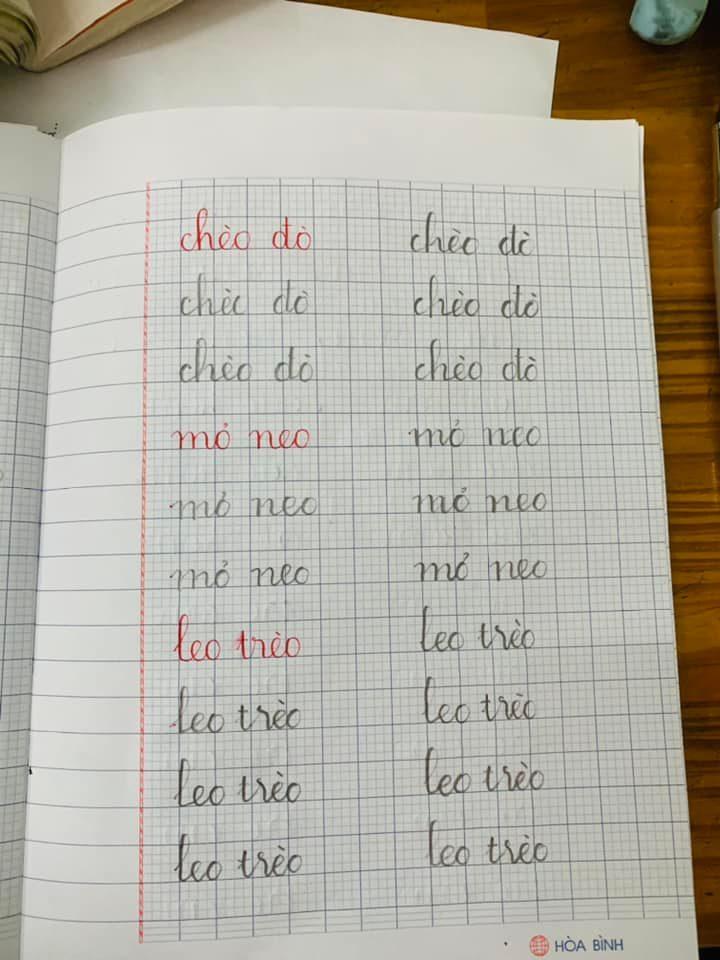 chèo đò chèo đò
chèo đò chèo đò
chèo đò chèo đò
mỏ neo mỏ neo
mỏ neo mỏ neo
mỏ neo mỏ neo
leo trèo leo trèo
leo trèo leo trèo
leo trèo leo trèo
leo trèo leo trèo
HÒA BÌNH